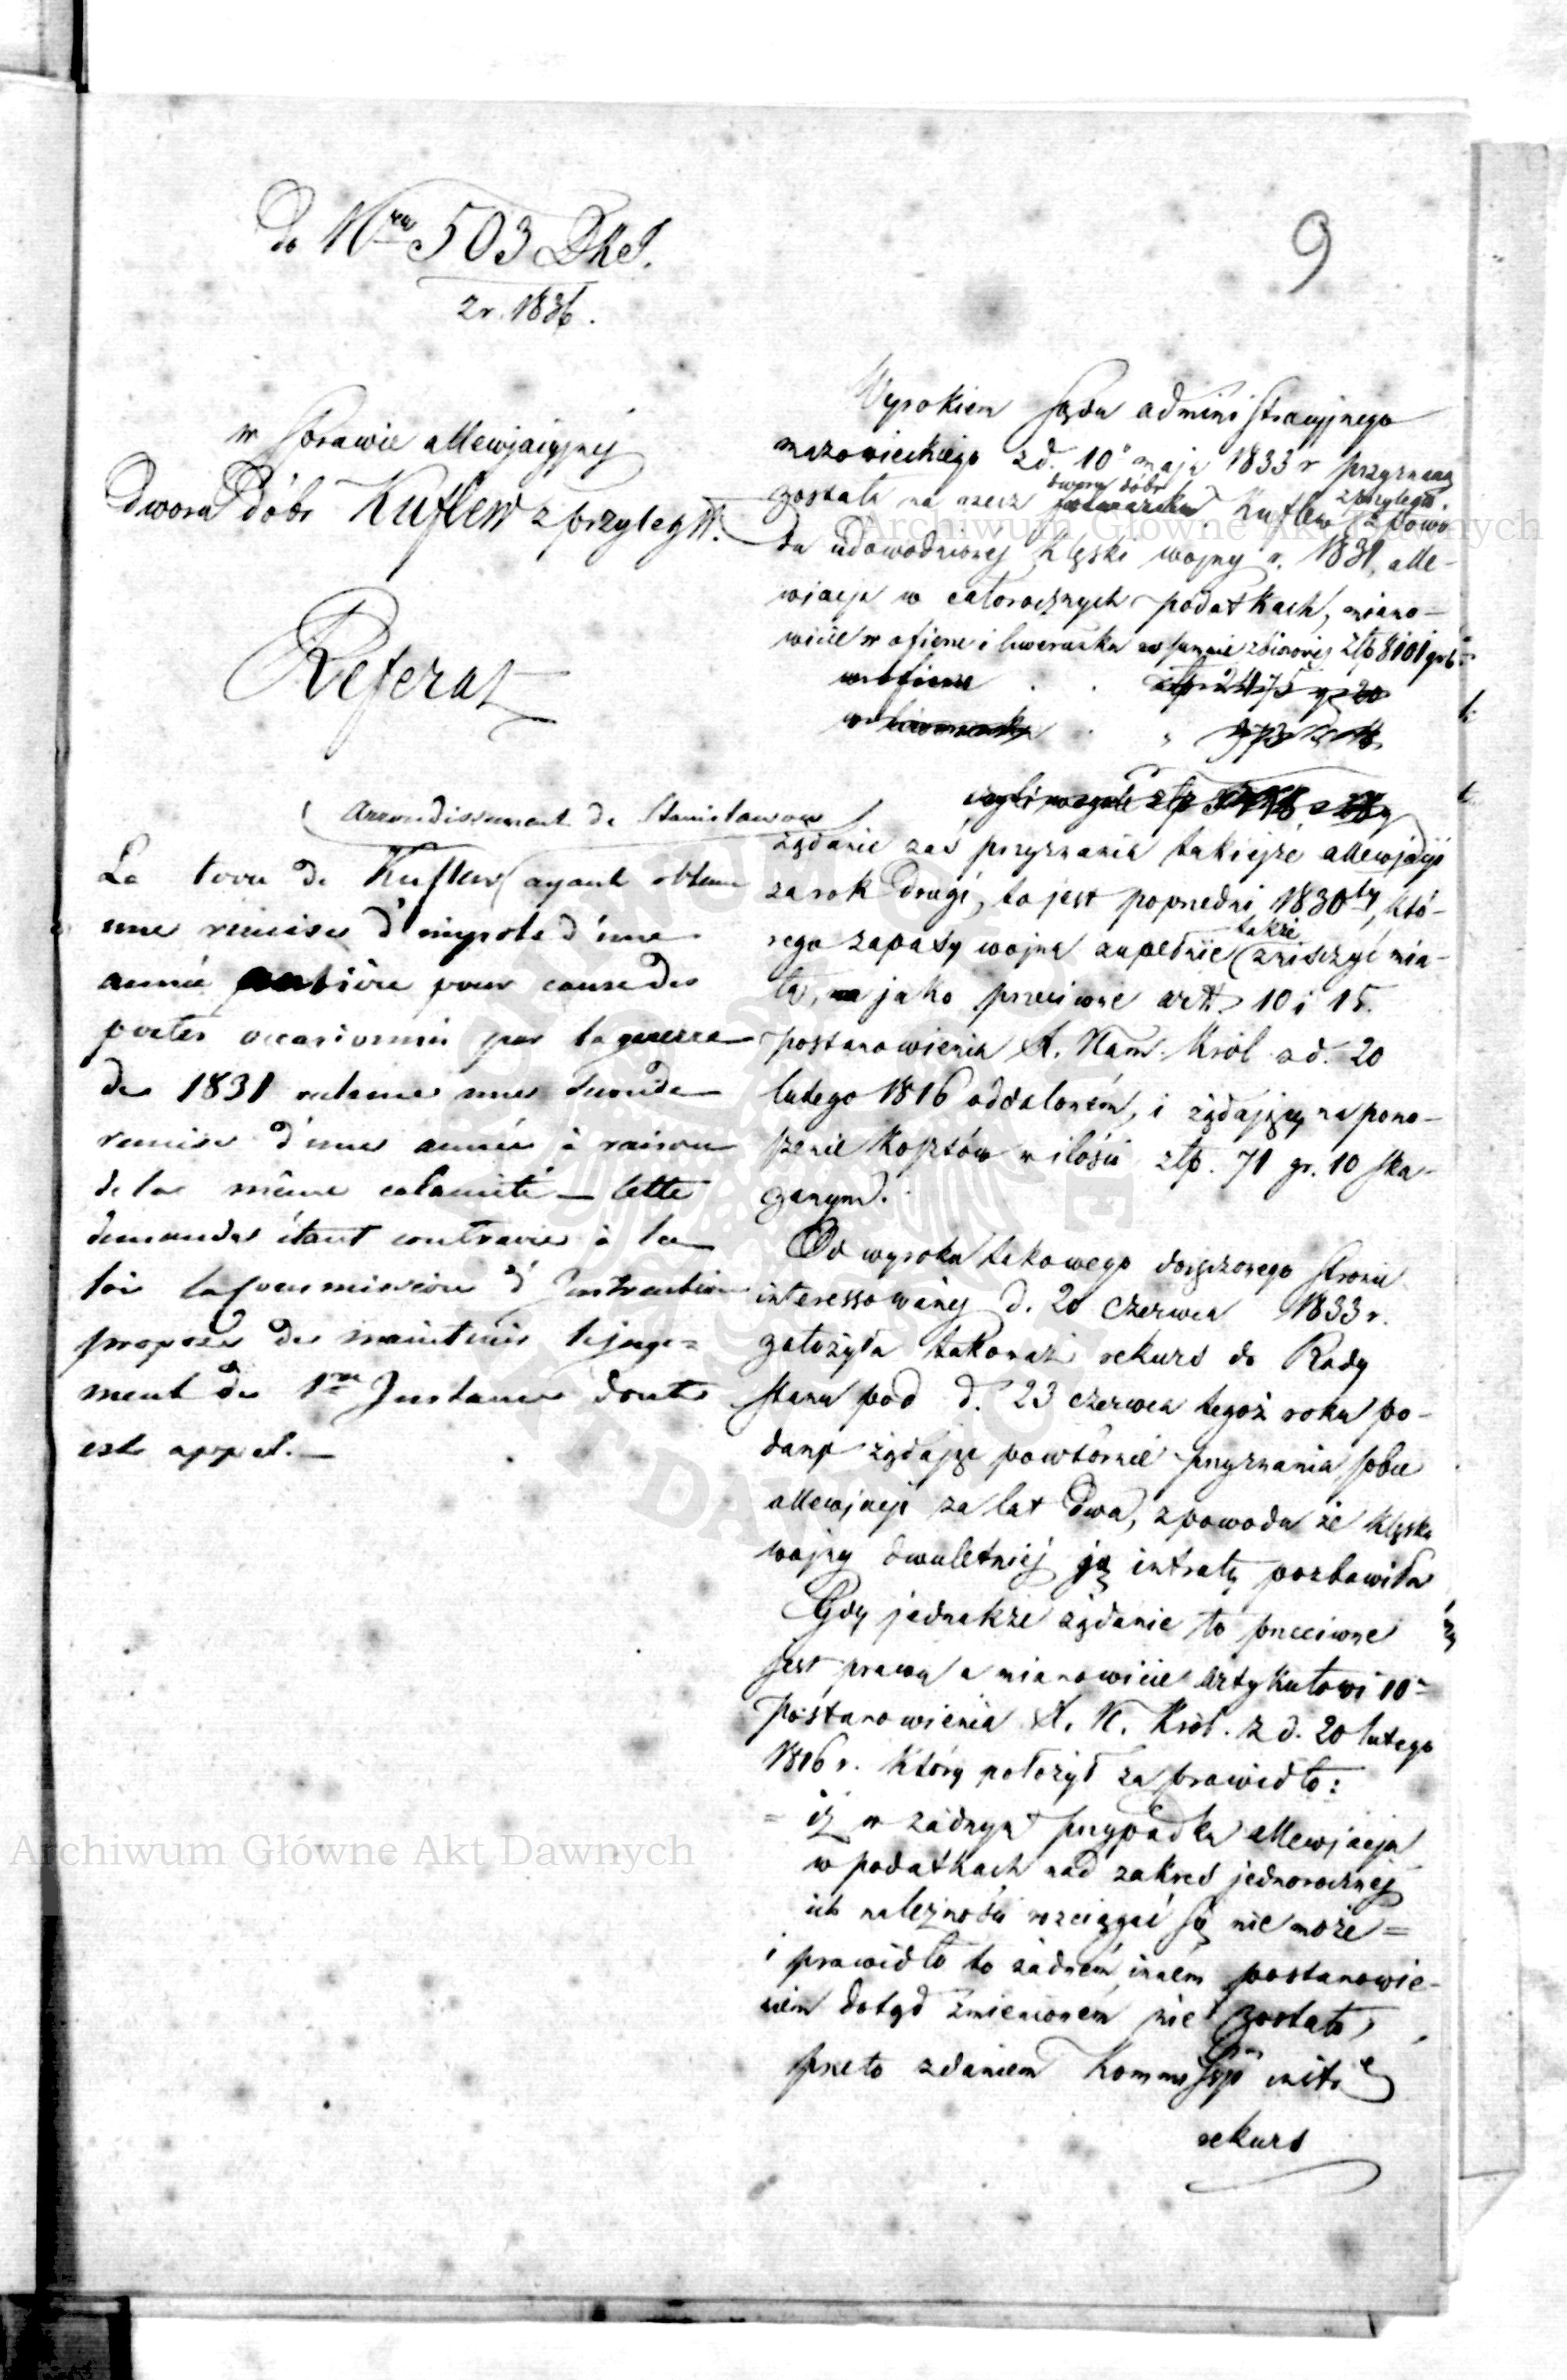 do Nru 503 Dks.
z r. 1836.
9
w sprawie allewjacyjnej
Dworu Dóbr Kuflew z przyległ.
Referat
(arrondissement de Stanislawow)
La terre de Kuflew ayant obtenu
une remise d'impots d'une
année entière pour cause des
pertes occasionnées par la guerre
de 1831 reclame une seconde
remise d'une année à raison
de la même calamité — Cette
demande étant contraire à la
loi la Commission d'Instruction
propose de maintenir le juge=
ment de 1re Instance dont
est appel. —
Wyrokiem Sądu administracyjnego
mazowieckiego z d. 10o maja 1833 r przyznaną
dworu dóbr z przyległ.
została na rzecz folwarku Kuflew z powo
du udowodnionej klęski wojny r. 1831, alle-
wjacja w całorocznych podatkach, miano-
wicie w ofierze i liwerunku w summie zbiorowej złp 8101 gr 6
w ofierze
w liwerunku
czyli w ogóle złp
żądanie zaś przyznania takiejże allewjacji
za rok drugi, to jest poprzedni 1830ty, któ-
także
rego zapasy wojna zupełnie zniszczyć mia-
ła, jako przeciwne artt. 10 i 15
postanowienia X. Nam. Król z d. 20
lutego 1816 oddalonem, i żądający na pono-
szenie kosztów w ilości złp. 71 gr. 10 ska-
zanym.
Od wyroku takowego doręczonego stronie
interessowanej d. 20 czerwca 1833 r.
założyła takoważ rekurs do Rady
Stanu pod d. 23 czerwca tegoż roku po-
dany żądając powtórnie przyznania sobie
allewjacji za lat dwa, z powodu że klęska
wojny dwuletniej ją intraty pozbawiła
Gdy jednakże żądanie to przeciwne
jest prawu a mianowicie artykułowi 10
Postanowienia X. N. Król. z d. 20 lutego
1816 r. który położył za prawidło:
= iż w żadnym przypadku allewjacja
w podatkach nad zakres jednorocznej
ich należności rozciągać się nie może =
i prawidło to żadnem innem postanowie-
niem dotąd zmienionem nie zostało,
przeto zdaniem Kommissyi
rekurs
Archiwum Główne Akt Dawnych
Archiwum Główne Akt Dawnych